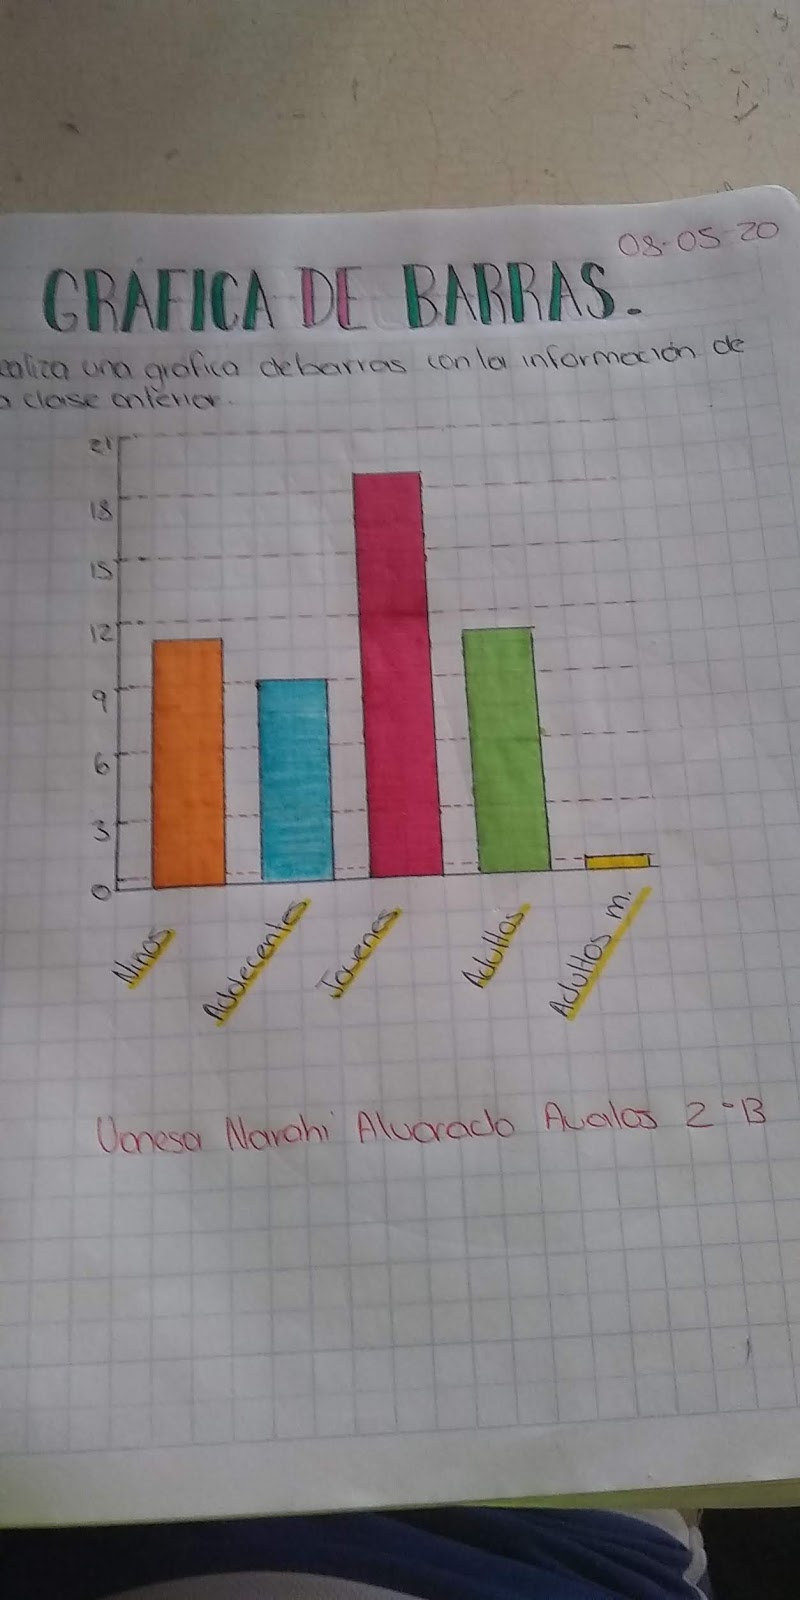 08-05-20
GRÁFICA DE BARRAS.
ealiza una grafica de barras con la información de
a clase anterior.
21
18
15
12
9
6
3
0
Ninos
Adolecentes
Jovenes
Adultos
Adultos m.
Vanesa Narahi Alvarado Avalos 2-B